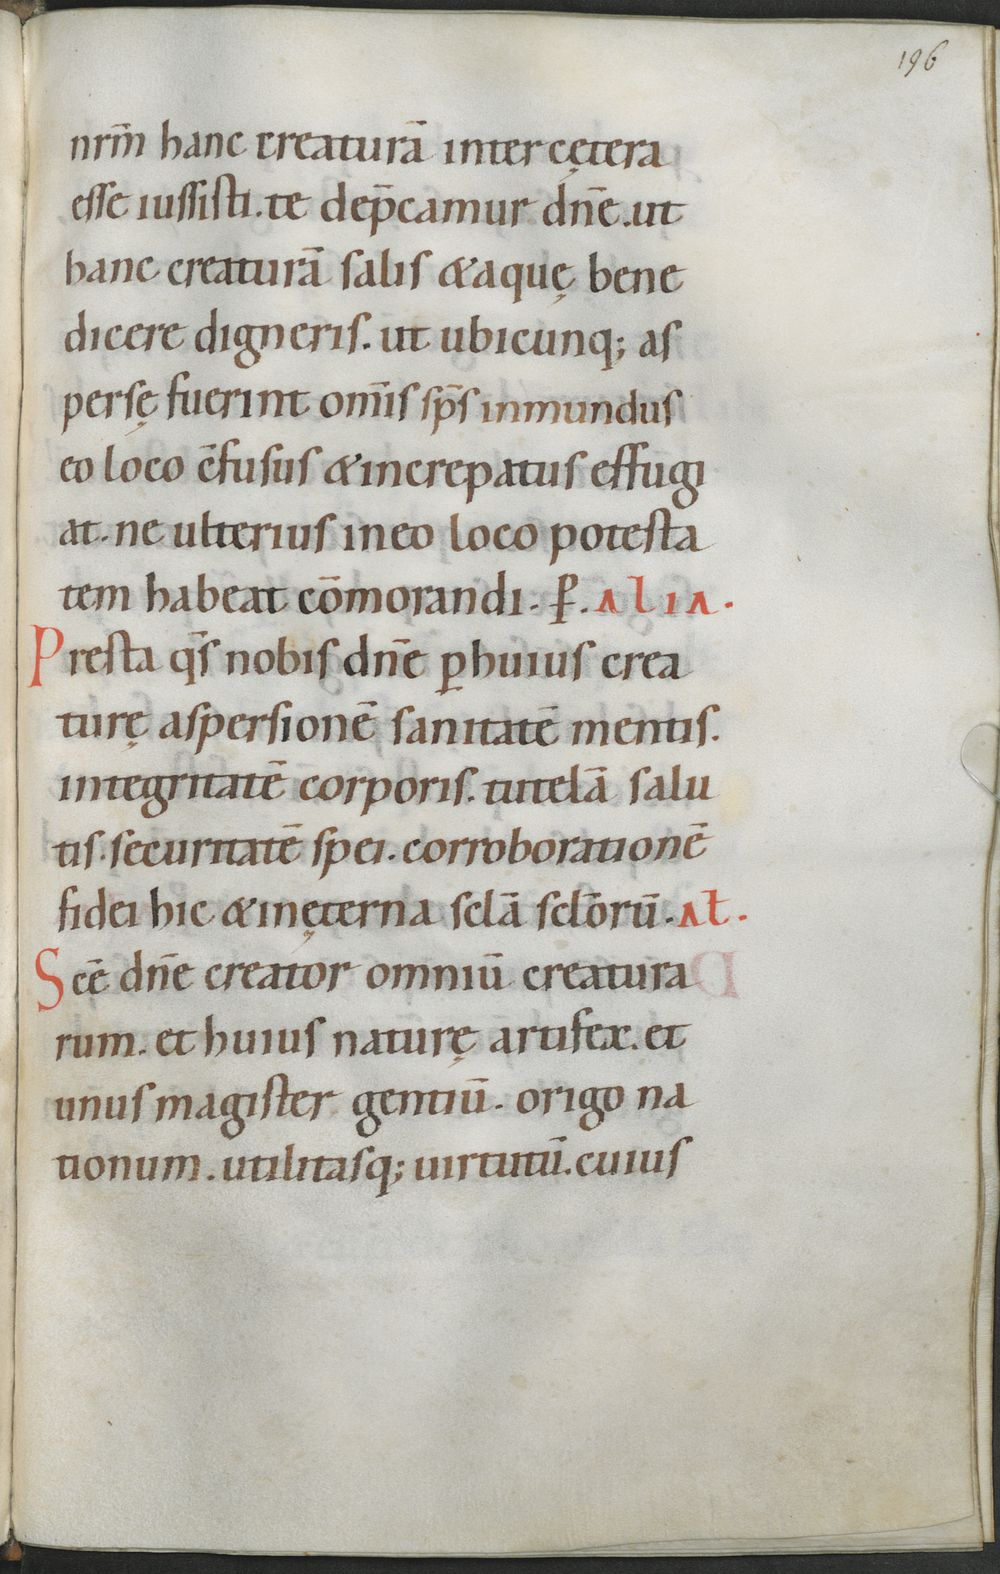 196
nrm̄ hanc creaturā inter cętera
esse iussisti. te dep̄camur dn̄e. ut
hanc creaturā salis & aquę bene
dicere digneris. ut ubicunq; as
persę fuerint om̄is sp̄s inmundus
eo loco c̄fusus & increpatus effugi
at. ne ulterius in eo loco potesta
tem habeat cōmorandi. P̄. ALIA.
Presta q̄s nobis dn̄e ꝑ huius crea
turę aspersionē sanitatē mentis.
integritatē corporis. tutelā salu
tis. securitatē spei. corroborationē
fidei hic & in ęterna sclā scl̄orū. Al̄.
Scē dn̄e creator omniū creatura
rum. et huius naturę artifex. et
unus magister gentiū. origo na
tionum. utilitasq; uirtutū. cuius